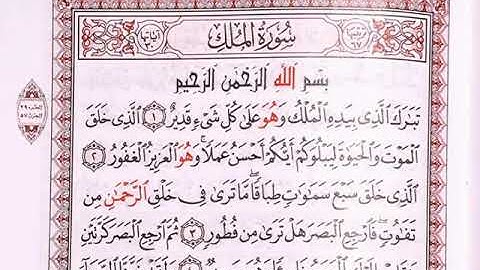 سُورَةُ المُلۡكِ
ترتيبها ٦٧
آياتها ٣٠
بِسۡمِ ٱللَّهِ ٱلرَّحۡمَٰنِ ٱلرَّحِيمِ
تَبَٰرَكَ ٱلَّذِي بِيَدِهِ ٱلۡمُلۡكُ وَهُوَ عَلَىٰ كُلِّ شَيۡءٖ قَدِيرٌ ١ ٱلَّذِي خَلَقَ
ٱلۡمَوۡتَ وَٱلۡحَيَوٰةَ لِيَبۡلُوَكُمۡ أَيُّكُمۡ أَحۡسَنُ عَمَلٗاۚ وَهُوَ ٱلۡعَزِيزُ ٱلۡغَفُورُ ٢
ٱلَّذِي خَلَقَ سَبۡعَ سَمَٰوَٰتٖ طِبَاقٗاۖ مَّا تَرَىٰ فِي خَلۡقِ ٱلرَّحۡمَٰنِ مِن
تَفَٰوُتٖۖ فَٱرۡجِعِ ٱلۡبَصَرَ هَلۡ تَرَىٰ مِن فُطُورٖ ٣ ثُمَّ ٱرۡجِعِ ٱلۡبَصَرَ كَرَّتَيۡنِ